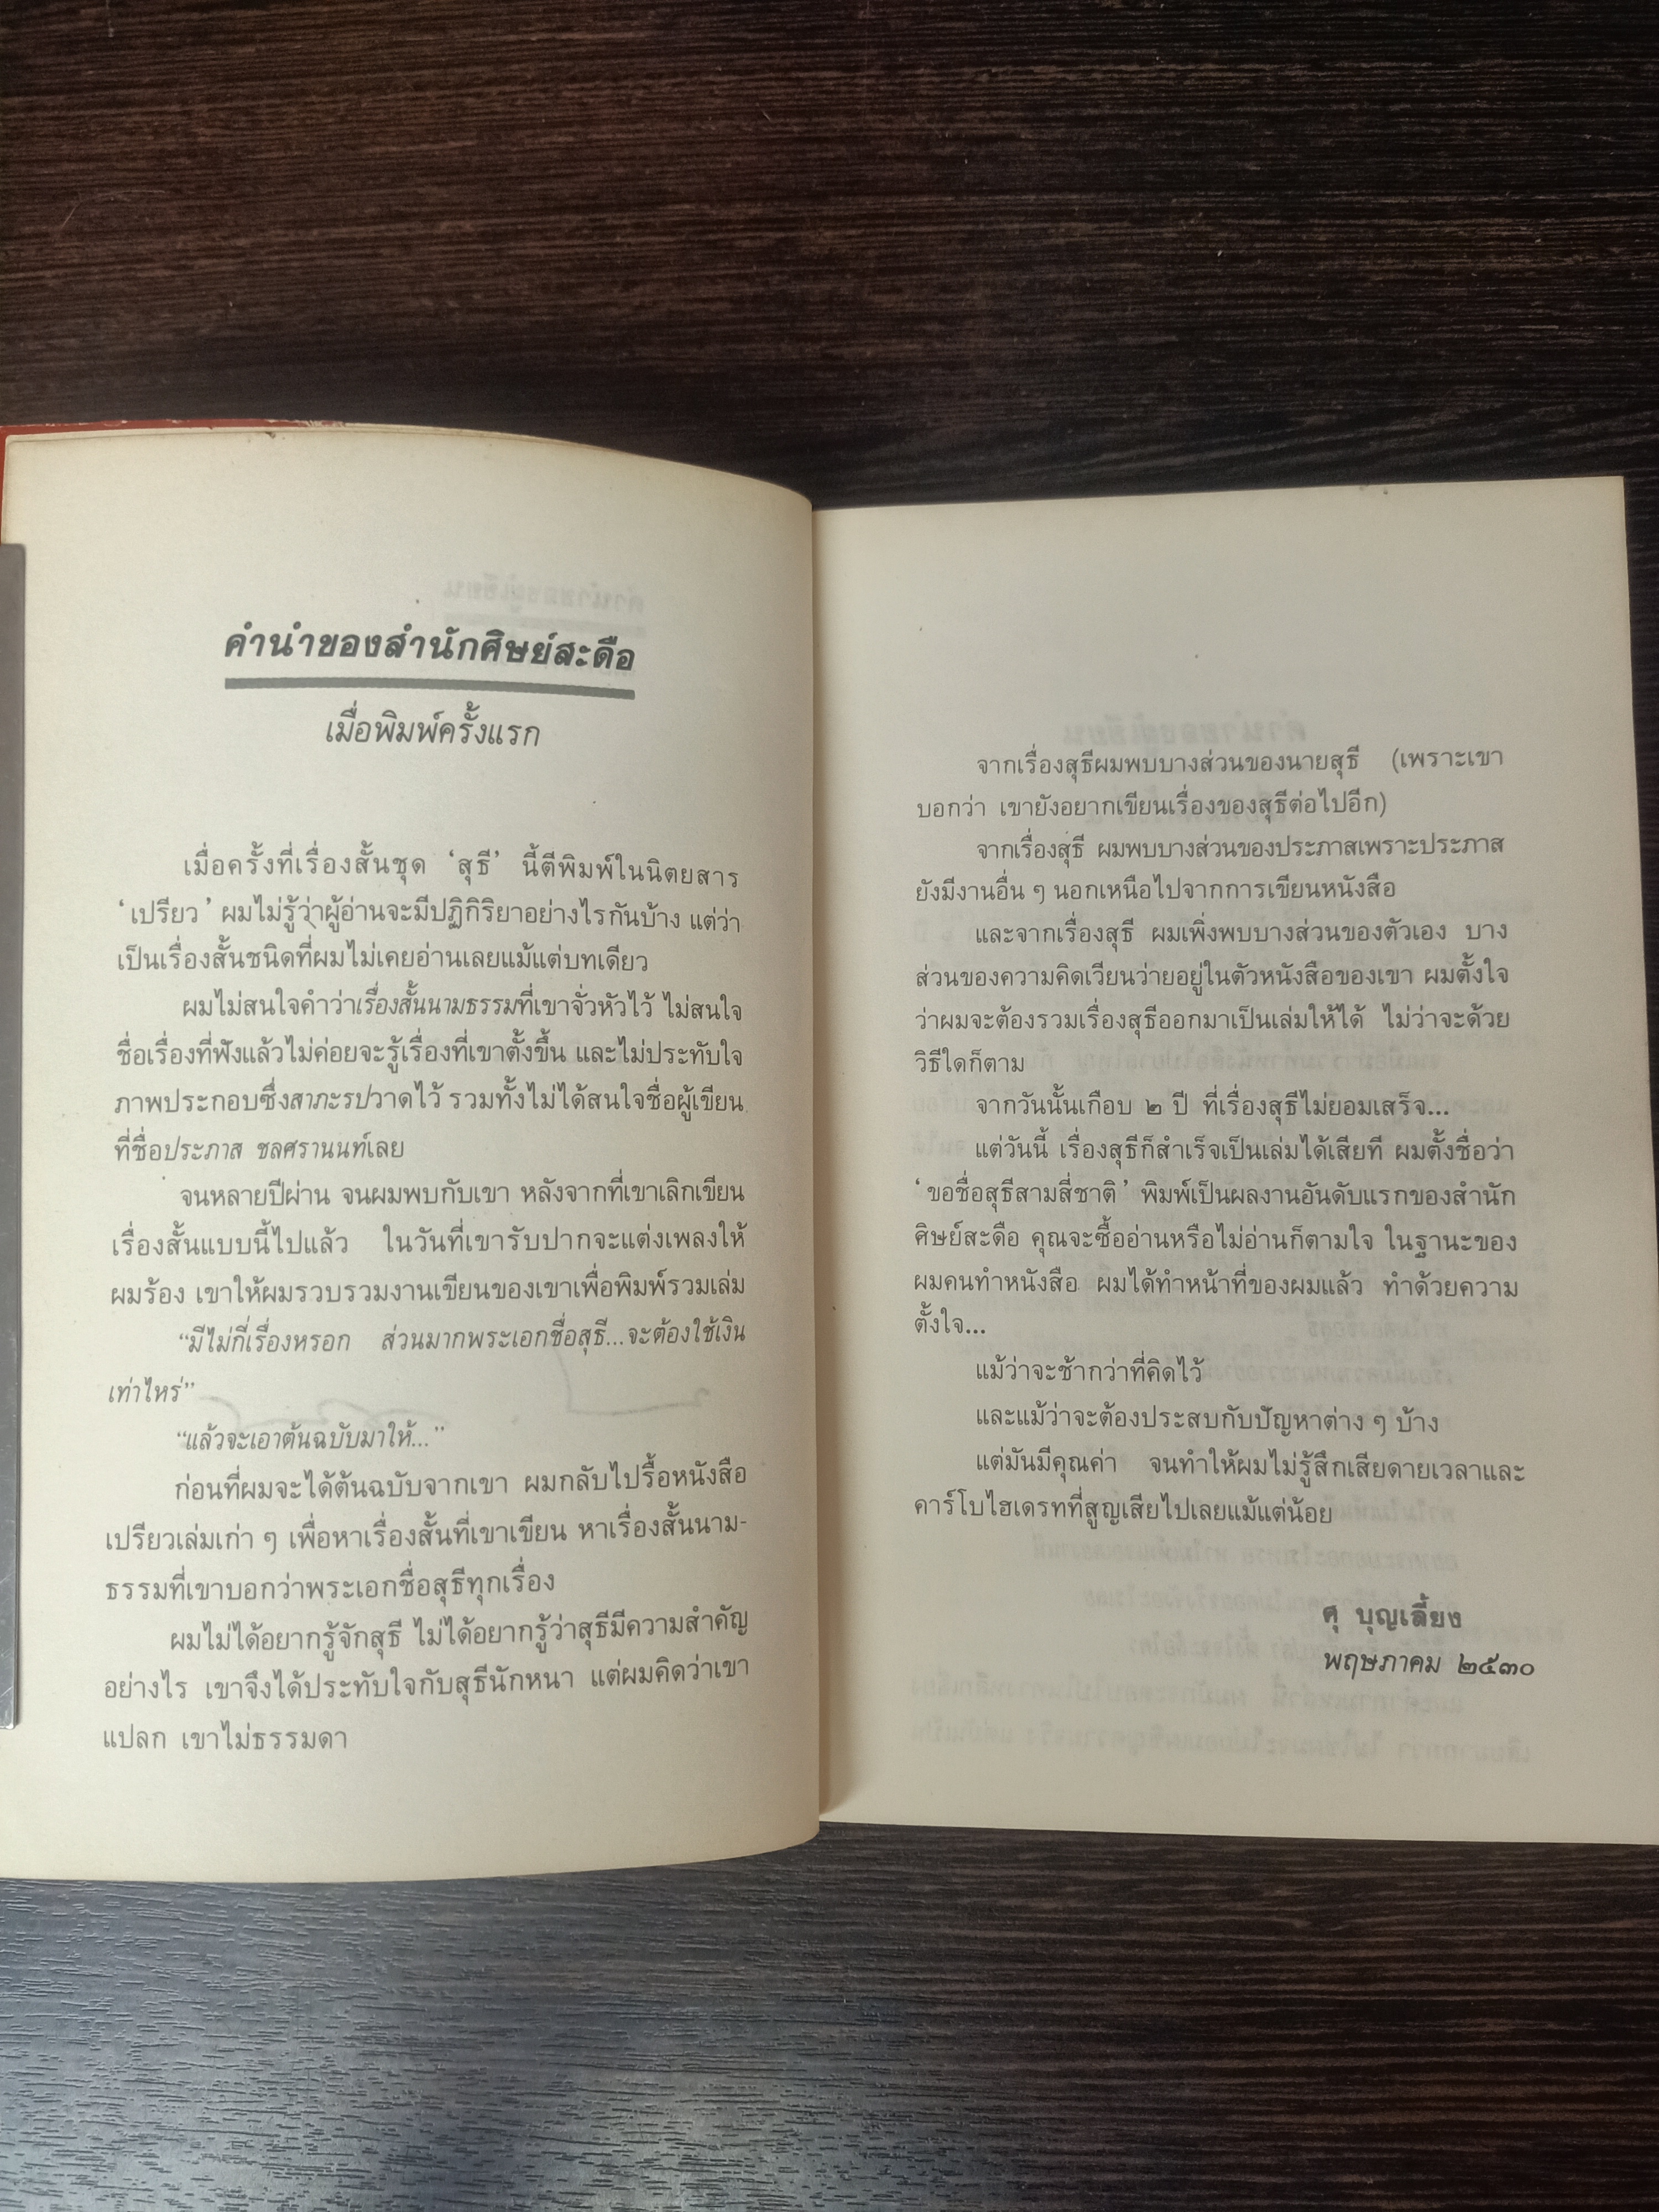 คำนำของสำนักศิษย์สะดือ
เมื่อพิมพ์ครั้งแรก
เมื่อครั้งที่เรื่องสั้นชุด ‘สุธี’ นี้ตีพิมพ์ในนิตยสาร
‘เปรียว’ ผมไม่รู้ว่าผู้อ่านจะมีปฏิกิริยาอย่างไรกันบ้าง แต่ว่า
เป็นเรื่องสั้นชนิดที่ผมไม่เคยอ่านเลยแม้แต่บทเดียว
ผมไม่สนใจคำว่าเรื่องสั้นนามธรรมที่เขาจั่วหัวไว้ ไม่สนใจ
ชื่อเรื่องที่ฟังแล้วไม่ค่อยจะรู้เรื่องที่เขาตั้งขึ้น และไม่ประทับใจ
ภาพประกอบซึ่งสาภะรปวาดไว้ รวมทั้งไม่ได้สนใจชื่อผู้เขียน
ที่ชื่อประภาส ชลศรานนท์เลย
จนหลายปีผ่าน จนผมพบกับเขา หลังจากที่เขาเลิกเขียน
เรื่องสั้นแบบนี้ไปแล้ว ในวันที่เขารับปากจะแต่งเพลงให้
ผมร้อง เขาให้ผมรวบรวมงานเขียนของเขาเพื่อพิมพ์รวมเล่ม
“มีไม่กี่เรื่องหรอก ส่วนมากพระเอกชื่อสุธี...จะต้องใช้เงิน
เท่าไหร่”
“แล้วจะเอาต้นฉบับมาให้...”
ก่อนที่ผมจะได้ต้นฉบับจากเขา ผมกลับไปรื้อหนังสือ
เปรียวเล่มเก่า ๆ เพื่อหาเรื่องสั้นที่เขาเขียน หาเรื่องสั้นนาม-
ธรรมที่เขาบอกว่าพระเอกชื่อสุธีทุกเรื่อง
ผมไม่ได้อยากรู้จักสุธี ไม่ได้อยากรู้ว่าสุธีมีความสำคัญ
อย่างไร เขาจึงได้ประทับใจกับสุธีนักหนา แต่ผมคิดว่าเขา
แปลก เขาไม่ธรรมดา
จากเรื่องสุธีผมพบบางส่วนของนายสุธี (เพราะเขา
บอกว่า เขายังอยากเขียนเรื่องของสุธีต่อไปอีก)
จากเรื่องสุธี ผมพบบางส่วนของประภาสเพราะประภาส
ยังมีงานอื่น ๆ นอกเหนือไปจากการเขียนหนังสือ
และจากเรื่องสุธี ผมเพิ่งพบบางส่วนของตัวเอง บาง
ส่วนของความคิดเวียนว่ายอยู่ในตัวหนังสือของเขา ผมตั้งใจ
ว่าผมจะต้องรวมเรื่องสุธีออกมาเป็นเล่มให้ได้ ไม่ว่าจะด้วย
วิธีใดก็ตาม
จากวันนั้นเกือบ ๒ ปี ที่เรื่องสุธีไม่ยอมเสร็จ...
แต่วันนี้ เรื่องสุธีก็สำเร็จเป็นเล่มได้เสียที ผมตั้งชื่อว่า
‘ขอชื่อสุธีสามสี่ชาติ’ พิมพ์เป็นผลงานอันดับแรกของสำนัก
ศิษย์สะดือ คุณจะซื้ออ่านหรือไม่อ่านก็ตามใจ ในฐานะของ
ผมคนทำหนังสือ ผมได้ทำหน้าที่ของผมแล้ว ทำด้วยความ
ตั้งใจ...
แม้ว่าจะช้ากว่าที่คิดไว้
และแม้ว่าจะต้องประสบกับปัญหาต่าง ๆ บ้าง
แต่มันมีคุณค่า จนทำให้ผมไม่รู้สึกเสียดายเวลาและ
คาร์โบไฮเดรทที่สูญเสียไปเลยแม้แต่น้อย
ศุ บุญเลี้ยง
พฤษภาคม ๒๕๓๐